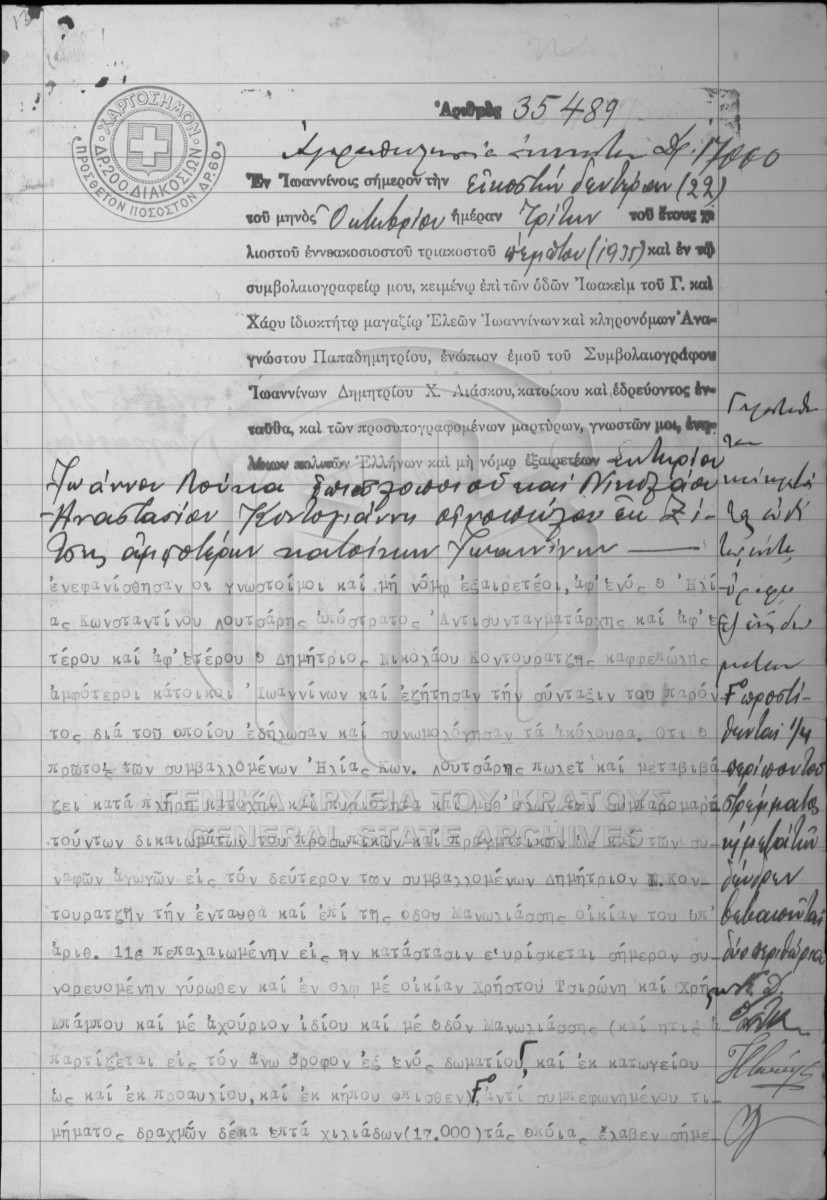 13
ΧΑΡΤΟΣΗΜΟΝ
ΔΡ.200 ΔΙΑΚΟΣΙΩΝ
ΠΡΟΣΘΕΤΟΝ ΠΟΣΟΣΤΟΝ ΔΡ.60
Ἀριθμὸς 35489
Ἀγοραπωλησία Δρ. 17000
Ἐν Ἰωαννίνοις σήμερον τὴν εἰκοστὴν δευτέραν (22)
τοῦ μηνὸς Ὀκτωβρίου ἡμέραν Τρίτην τοῦ ἔτους χι
λιοστοῦ ἐννεακοσιοστοῦ τριακοστοῦ πέμπτου (1935) καὶ ἐν τῷ
συμβολαιογραφείῳ μου, κειμένῳ ἐπὶ τῶν ὁδῶν Ἰωακεὶμ τοῦ Γ. καὶ
Χάρυ ἰδιοκτήτῳ μαγαζίῳ Ἐλεῶν Ἰωαννίνων καὶ κληρονόμων Ἀνα-
γνώστου Παπαδημητρίου, ἐνώπιον ἐμοῦ τοῦ Συμβολαιογράφου
Ἰωαννίνων Δημητρίου Χ. Λιάσκου, κατοίκου καὶ ἑδρεύοντος ἐν-
ταῦθα, καὶ τῶν προσυπογραφομένων μαρτύρων, γνωστῶν μοι, ἐνη-
λίκων πολιτῶν Ἑλλήνων καὶ μὴ νόμῳ ἐξαιρετέων Σωτηρίου
Ἰωάννου Λούκα καὶ Νικολάου
Ἀναστασίου Κοντογιάννη ἐκ Ζί-
τσης ἀμφοτέρων κατοίκων Ἰωαννίνων
ἐνεφανίσθησαν οι γνωστοίμοι καί μή νόμῳ ἐξαιρετέοι, ἀφ'ἑνός ο Ἠλί
ας Κωνσταντίνου Λουτσάρης ἀπόστρατος Ἀντισυνταγματάρχης καί ἀφ'ε
τέρου καί ἀφ'ετέρου ο Δημήτριος Νικολάου Κοντουρατζής καφφεπώλης
ἀμφότεροι κάτοικοι Ἰωαννίνων καί ἐζήτησαν τήν σύνταξιν του παρόν
τος διά τοῦ οποίου ἐδήλωσαν καί συνωμολόγησαν τά ἀκόλουθα. Οτι ο
πρῶτος τῶν συμβαλλομένων Ἠλίας Κων. Λουτσάρης πωλεῖ καί μεταβιβά
ζει κατά πλήρη κατοχήν καί κυριότητα καί μεθ'ὅλων τῶν συμπαρομαρ
τούντων δικαιωμάτων του προσωπικῶν καί πραγματικῶν ὡς καί τῶν συ
ναφῶν ἀγωγῶν εἰς τόν δεύτερον τῶν συμβαλλομένων Δημήτριον Ν. Κον-
τουρατζήν τήν ἐνταῦθα καί ἐπί τῆς οδοῦ Μανωλιάσσης οἰκίαν του ὑπ'
ἀριθ. 11ε πεπαλαιωμένην εἰς ην κατάστασιν ευρίσκεται σήμερον συ
νορευομένην γύρωθεν καί ἐν ὅλῳ μέ οἰκίαν Χρήστου Τσιρώνη καί Χρήσ
Μπάμπου καί μέ ἀχούριον ἰδίου καί μέ οδόν Μανωλιάσσης (καί ητις ἀ
παρτίζεται εἰς τόν ἄνω ὄροφον ἐξ ἑνός δωματίου, καί ἐκ κατωγείου
ὡς καί ἐκ προαυλίου, καί ἐκ κήπου οπισθεν) ἀντί συμπεφωνημένου τι
μήματος δραχμῶν δέκα επτά χιλιάδων (17.000) τάς οποίας ἔλαβεν σήμε-
προστί-
θενται
περίπου τοῦ
στρέμματος
δένδρων
ΓΕΝΙΚΑ ΑΡΧΕΙΑ ΤΟΥ ΚΡΑΤΟΥΣ
GENERAL STATE ARCHIVES